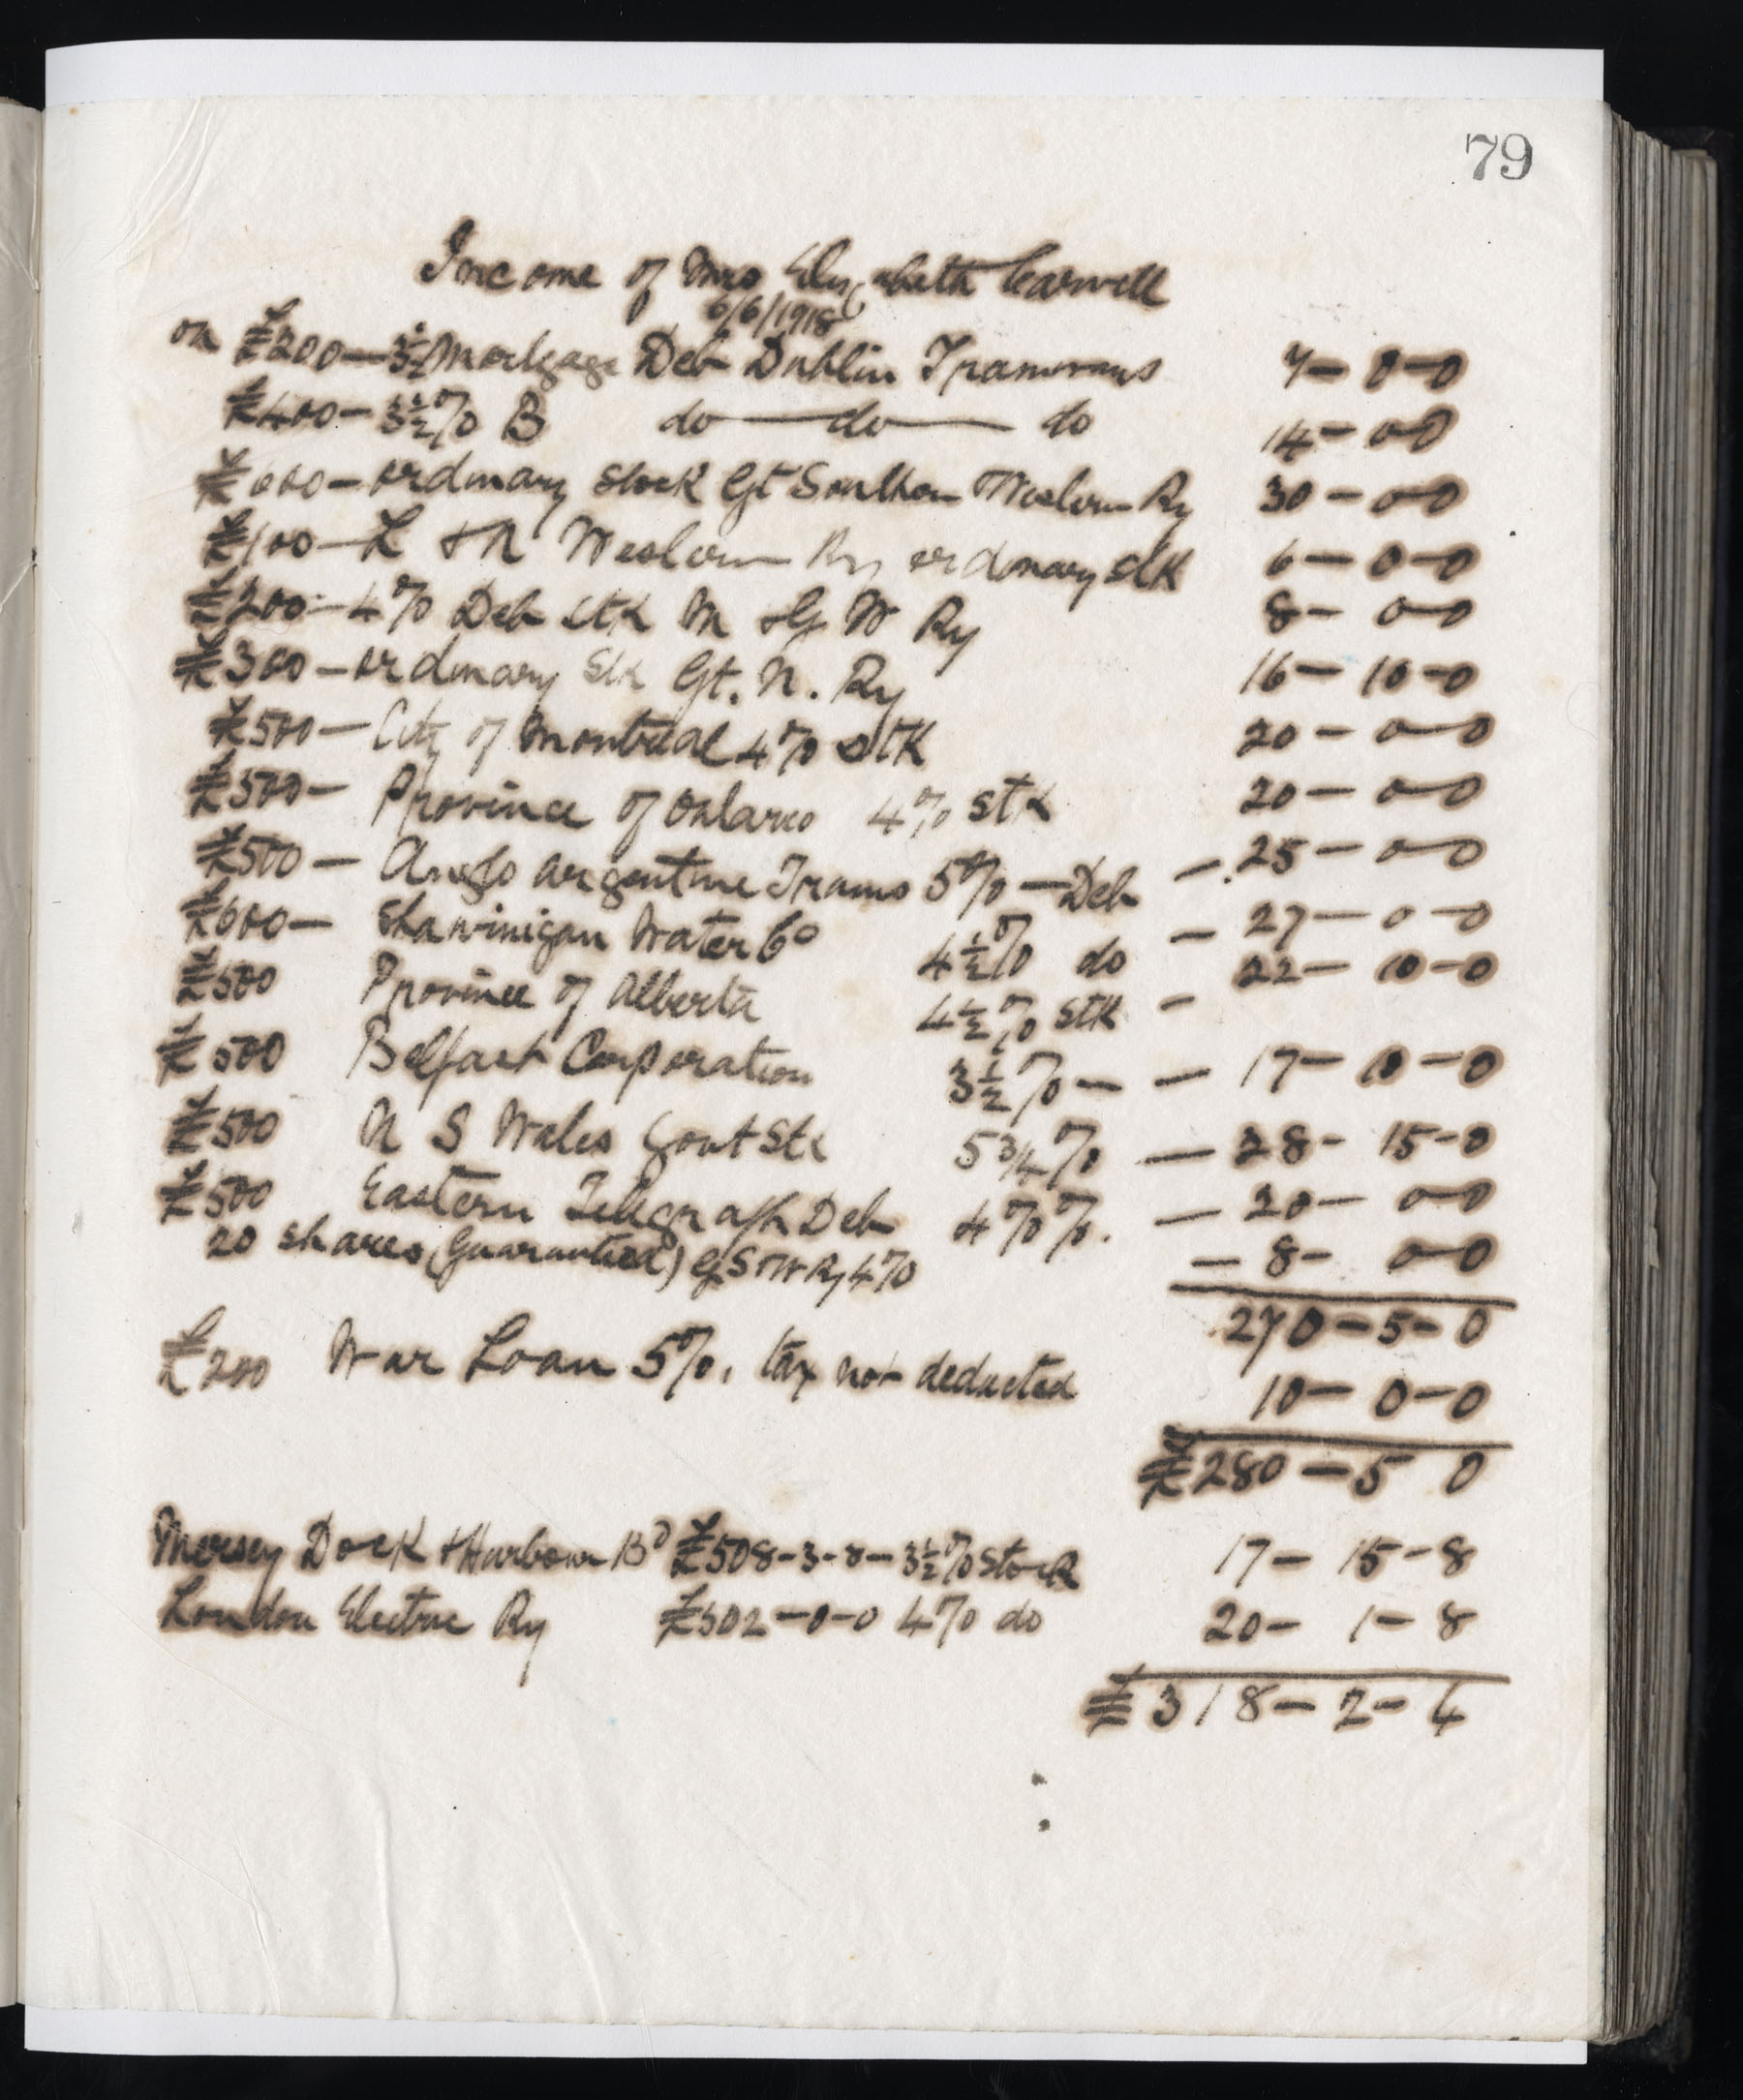 79
Income of Mrs Elizabeth Carvill
6/6/1918
on £200—3½ Mortgage Deb Dublin Tramways 7—0—0
£400—3½% B do—do—do 14—0—0
£600—ordinary stock Gt Southern Western Ry 30—0—0
£100—L & N Western Ry ordinary stk 6—0—0
£200—4% Deb stk M & G W Ry 8—0—0
£300—ordinary Stk Gt. N. Ry 16—10—0
£500—City of Montreal 4% stk 20—0—0
£500—Province of Ontario 4% stk 20—0—0
£500—Anglo argentine Trams 5%—Deb—25—0—0
£600—Shawinigan Water Co 4½% do—27—0—0
£500 Province of Alberta 4½% stk—22—10—0
£500 Belfast Corporation 3½%——17—10—0
£500 N S Wales Govt Stk 5¾%—28—15—0
£500 Eastern Telegraph Deb 4%%.—20—0—0
20 shares (Guaranteed) G S & W Ry 4%—8—0—0
270—5—0
£200 War Loan 5%, tax not deducted 10—0—0
£280—5 0
Mersey Dock & Harbour Bd £508-3-8—3½% Stock 17—15—8
London Electric Ry £502—0—0 4% do 20—1—8
£318—2—4